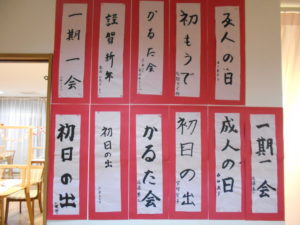 成人の日
初もうで
かるた会
謹賀新年
一期一会
一期一会
成人の日
初日の出
かるた会
初日の出
初日の出